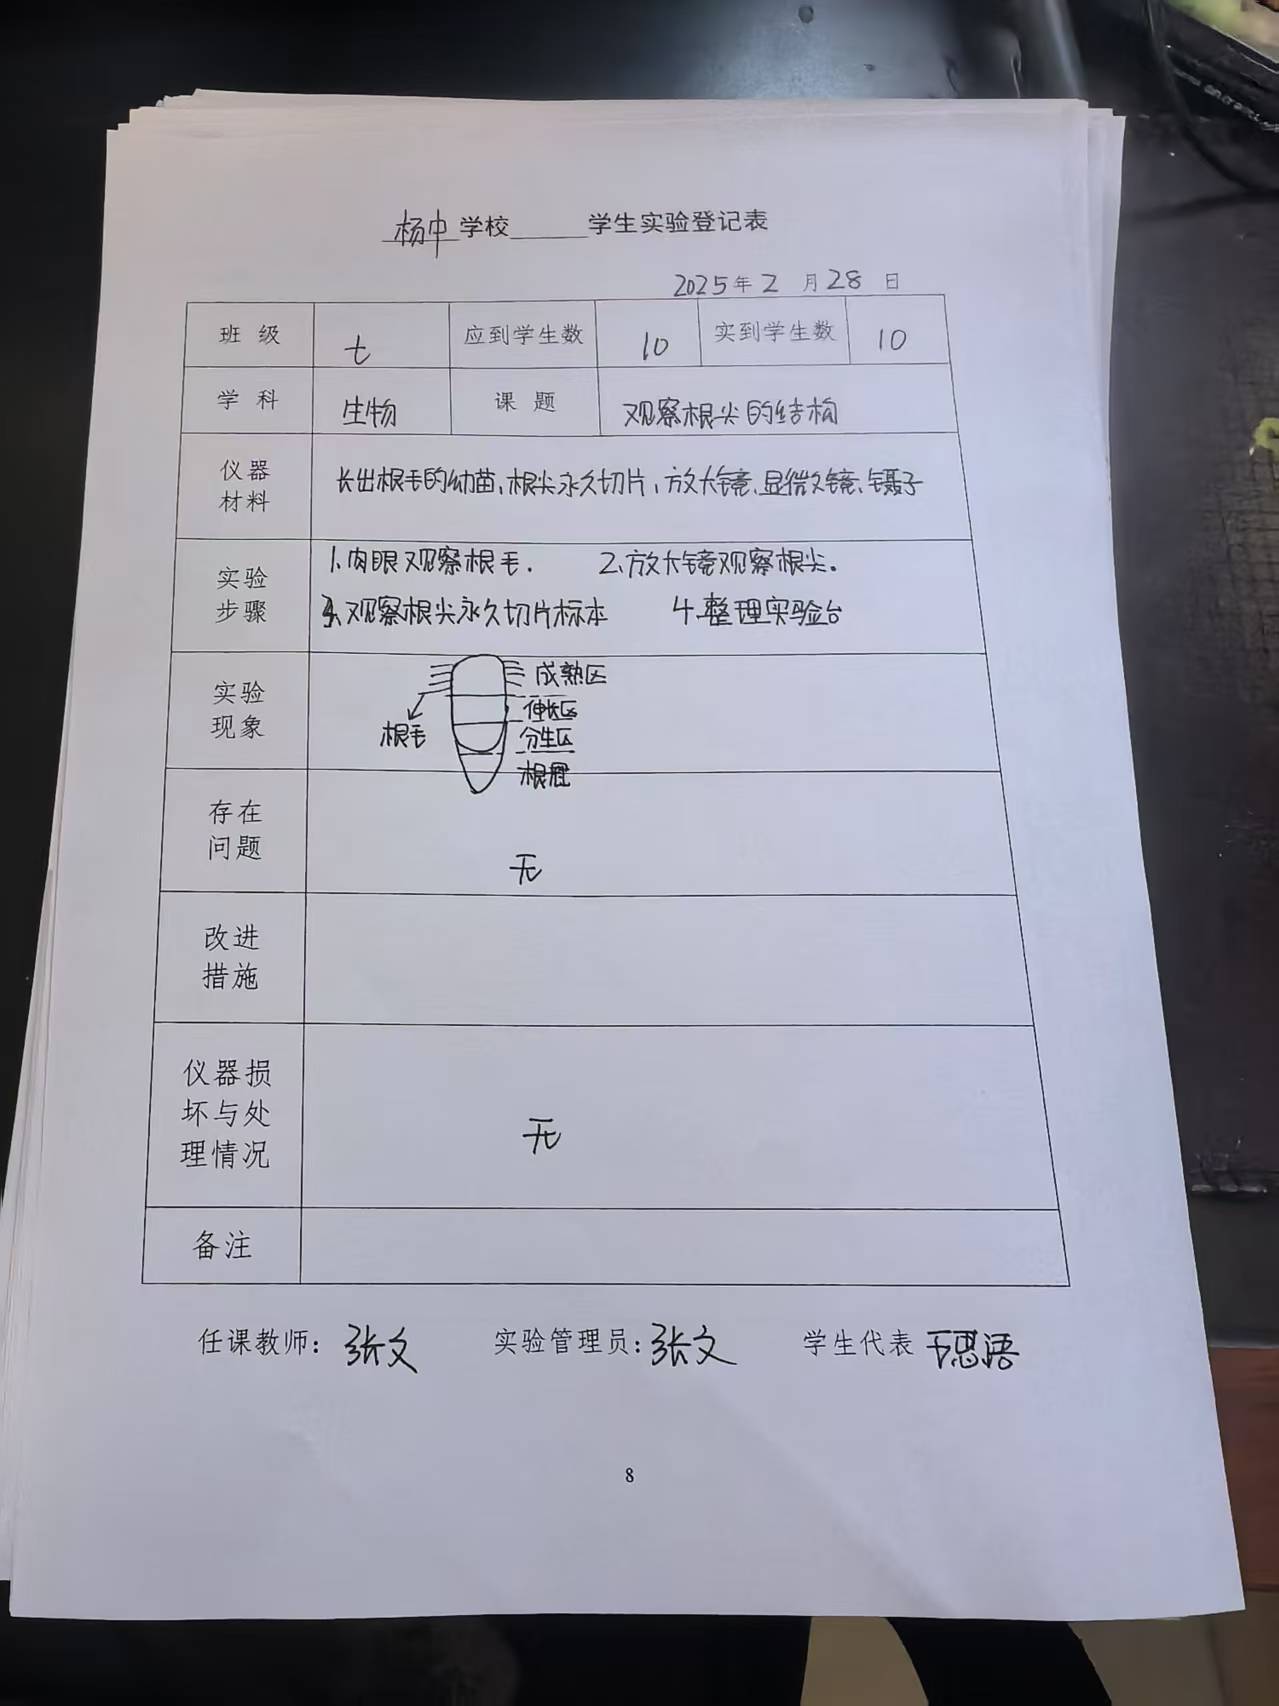 杨中学校______学生实验登记表
2025年2月28日
班级 七 应到学生数 10 实到学生数 10
学科 生物 课题 观察根尖的结构
仪器
材料
长出根毛的幼苗、根尖永久切片、放大镜、显微镜、镊子
实验
步骤
1.肉眼观察根毛. 2.放大镜观察根尖。
3.观察根尖永久切片标本 4.整理实验台
实验
现象
成熟区
伸长区
根毛
分生区
根冠
存在
问题
无
改进
措施
仪器损
坏与处
理情况
无
备注
任课教师: 张文 实验管理员: 张文 学生代表 思语
8